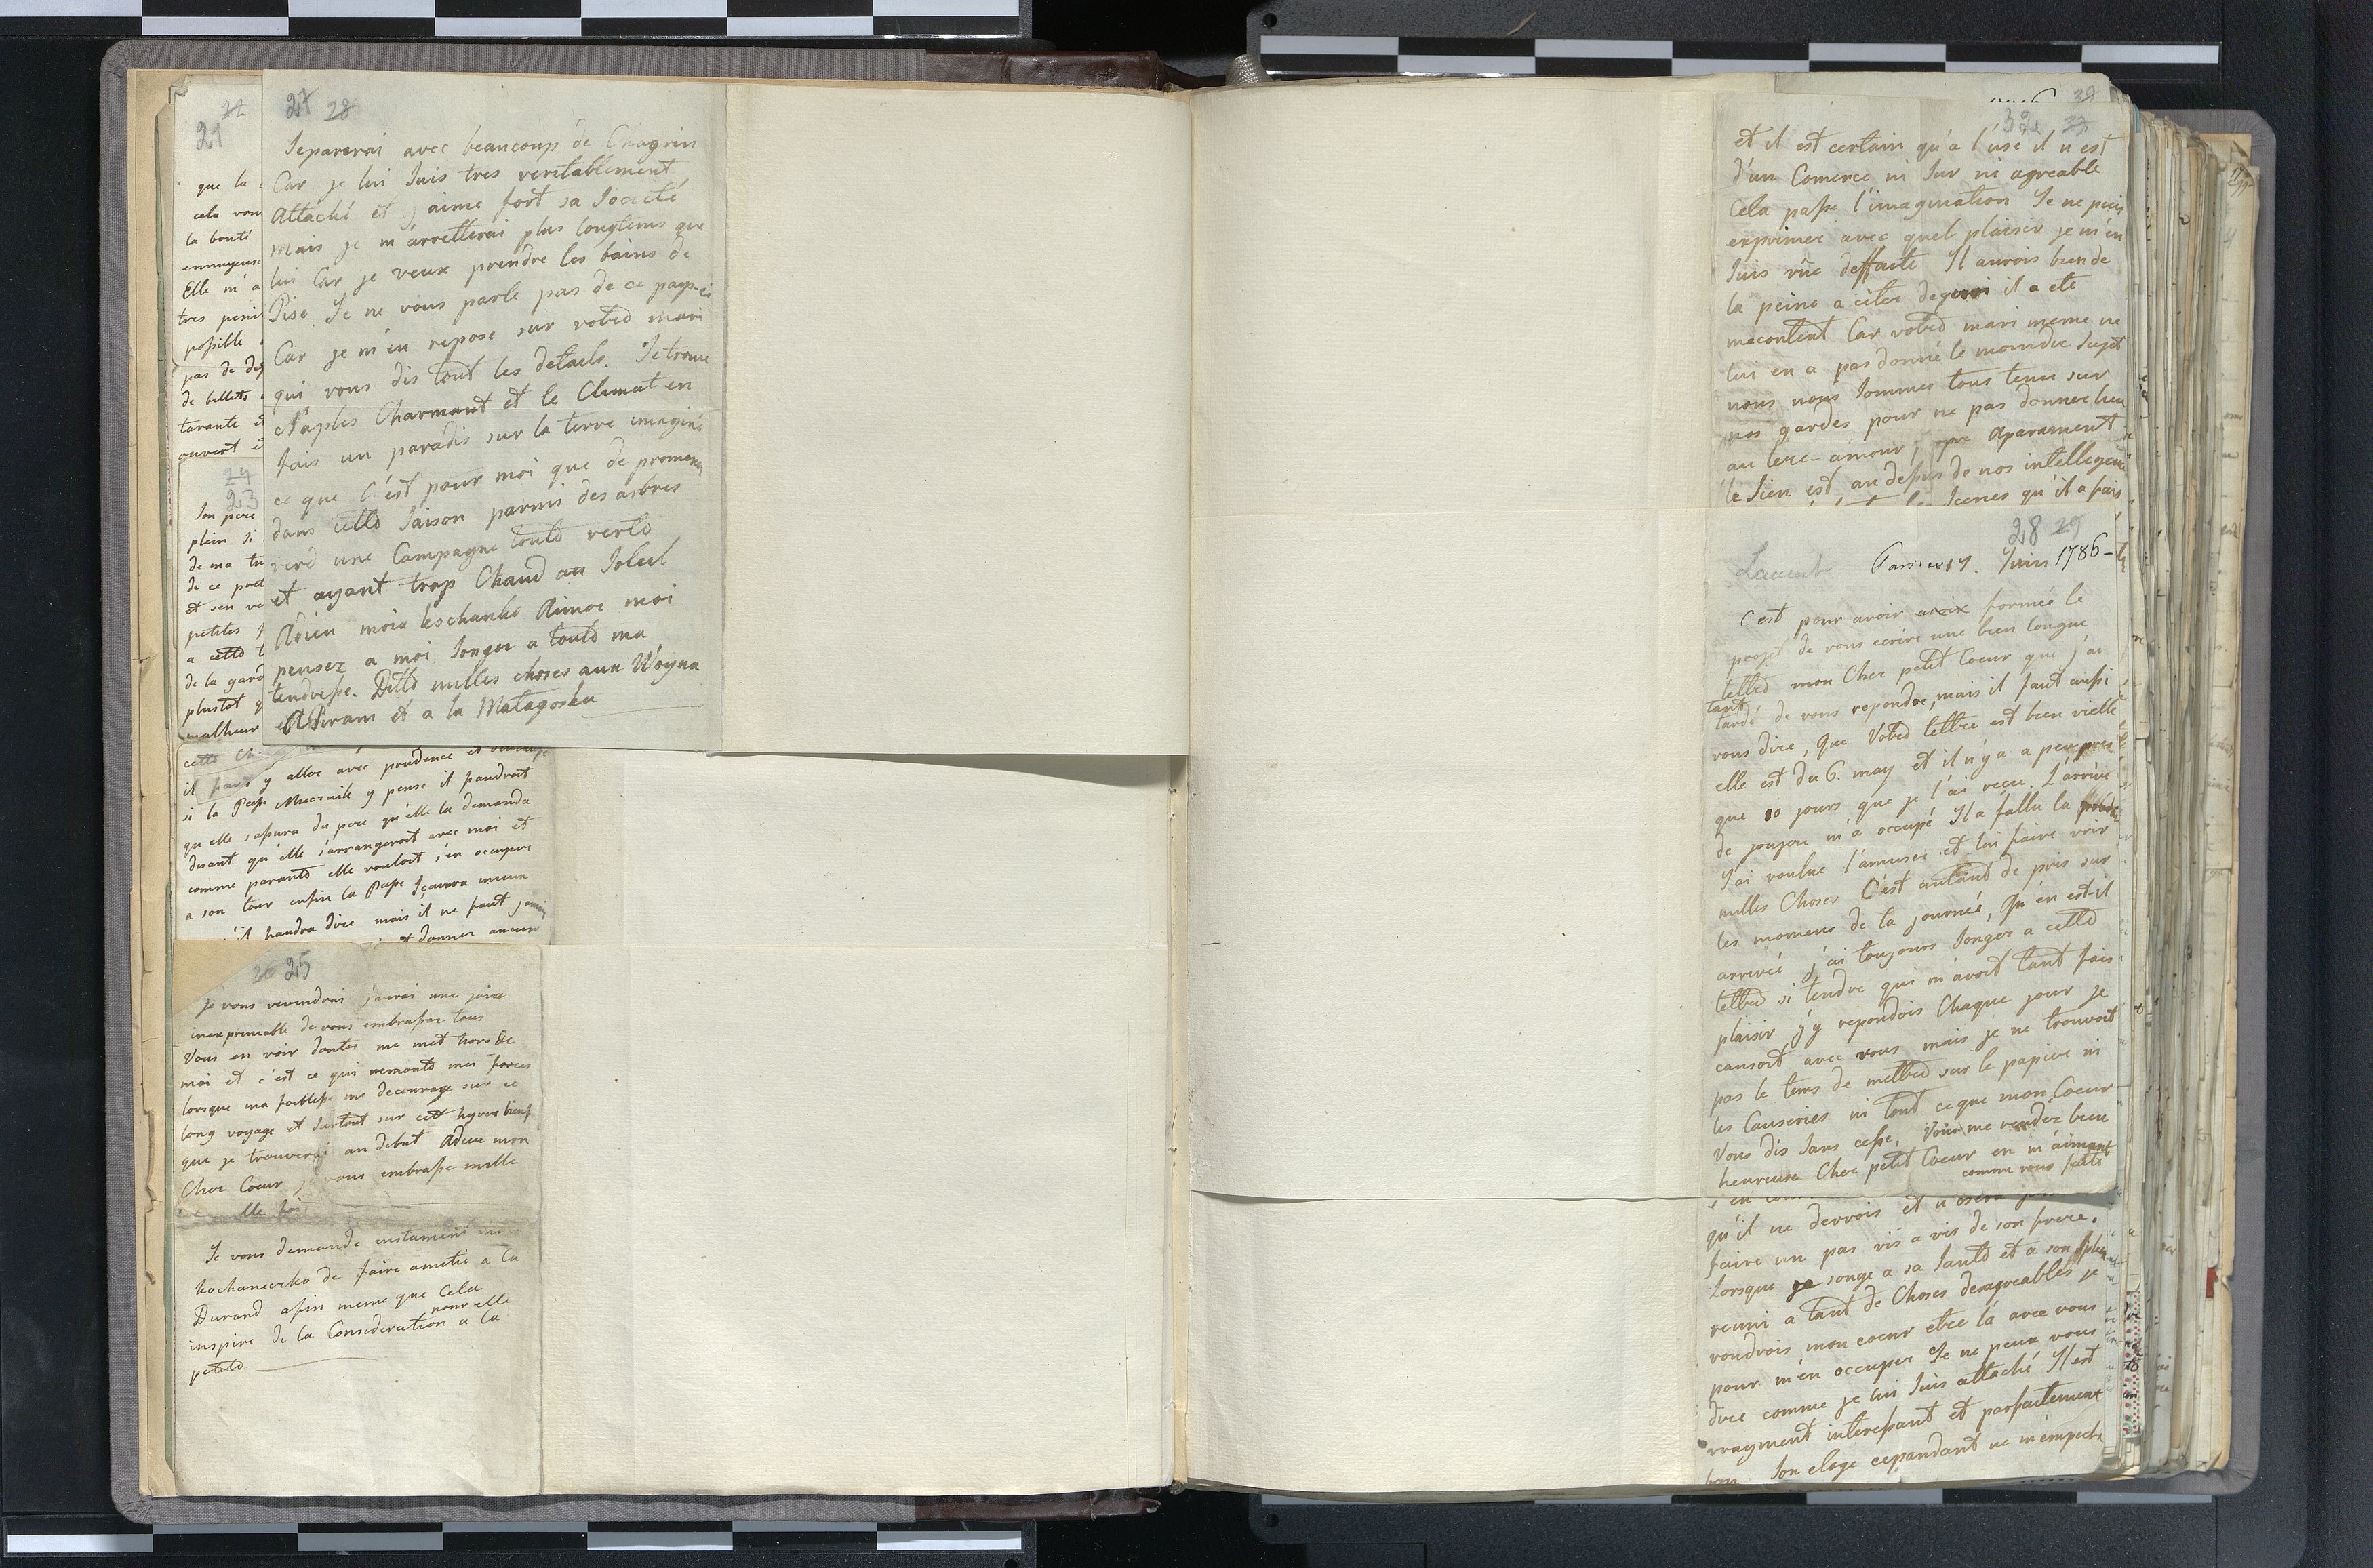 22
21
que la
cela vou
la bonté
ennuyeuse
Elle m'a
tres peni
possible
pas de de
de billets
tarante et
ouvert et
24
23
Son pere
plein si
de ma tu
de ce pret
et s'en ve
petites
a cette
de la gard
plustot q
malheur
27 28
Separerai avec beaucoup de Chagrin
Car je lui Suis tres veritablement
attaché et j'aime fort sa Societé
mais je m'arretterai plus longtems que
lui Car je veux prendre les bains de
Pise. Je ne vous parle pas de ce pays-ci
Car je m'en repose sur votred mari
qui vous dis tout les details. Je trouve
Naples Charmant et le Climat en
fais un paradis sur la terre imaginé
ce que c'est pour moi que de promener
dans cette Saison parmi des arbres
verd une Campagne toute verte
et ayant trop Chaud au Soleil
Adieu moia kochanko Aimee moi
pensez a moi Songer a toute ma
tendresse. Ditte milles choses aux Woyna
et A Piram et a la Matagoska
cette Ch
il faut y aller avec prudence et
si la Pesse Miecznik y pense il faudroit
qu'elle s'assura du pere qu'elle la demanda
disant qu'elle s'arrangeroit avec moi et
comme parante elle vouloit s'en occuper
a son tour enfin la Pesse Scaura mieux
il faudra dire mais il ne faut jamais
et donner aucun
26 25
Je vous reviendrai j'aurai une joie
inexprimable de vous embrasser tous
Vous en voir doutes me met hors de
moi et c'est ce qui remonte mes forces
lorsque ma foiblesse me decourage sur ce
long voyage et Surtout sur cett hyver
que je trouverai au debut Adieu mon
Cher Coeur je vous embrasse mille
elle foi
Je vous demande instament ma
kochaneczko de faire amitié a la
Durand afin meme que Cela
inspire de la Consideration pour elle a la
petite
39
32 33
et il est certain qu'a l'usé il n'est
d'un Comerce ni Sur ni agreable
Cela passe l'imagination Je ne puis
exprimer avec quel plaisir je m'en
Suis vûe deffaite Il aurois bien de
la peine a citer de quoi il a eté
mecontent Car votred mari meme ne
lui en a pas donné le moindre Sujet
nous nous Sommes tous tenu sur
nos gardes pour ne pas donner lieu
au tere-amour, Aparament
le Sien est au dessus de nos intelligence
les Scenes qu'il a fais
28 29
Laurent 17. Juin 1786-
C'est pour avoir formée le
projet de vous ecrire une bien longue
letted mon Cher petit Coeur que j'ai
tant
tardé de vous repondre, mais il faut aussi
vous dire, que Votred lettre est bien vielle
elle est du 6. may et il n'y a a peu pres
que 10 jours que je l'ai recu. L'arrivé
de joujou m'a occupé Il a fallu la
J'ai voulue l'amuser et lui faire voir
milles Choses C'est autant de pris sur
les momens de la journée, Qu'en est-il
arrivée j'ai toujours Songer a cette
letted si tendre qui m'avoit tant fais
plaisir j'y repondois Chaque jour je
causoit avec vous mais je ne trouvoit
pas le tems de metted sur le papier ni
les Causeries ni tout ce que mon Coeur
Vous dis Sans cesse, Vous me rendez bien
heureuse Cher petit Coeur en m'aimant
comme vous faite
qu'il ne devrois et n'osera
faire un pas vis a vis de son frere.
Lorsque je songe a sa Santé et a son
reuni a tant de Choses desagreables je
voudrois mon coeur etre là avec vous
pour m'en occuper Je ne peux vous
dire comme je lui Suis attaché Il est
vrayment interessant et parfaitement
bon Son eloge cependant ne m'empech